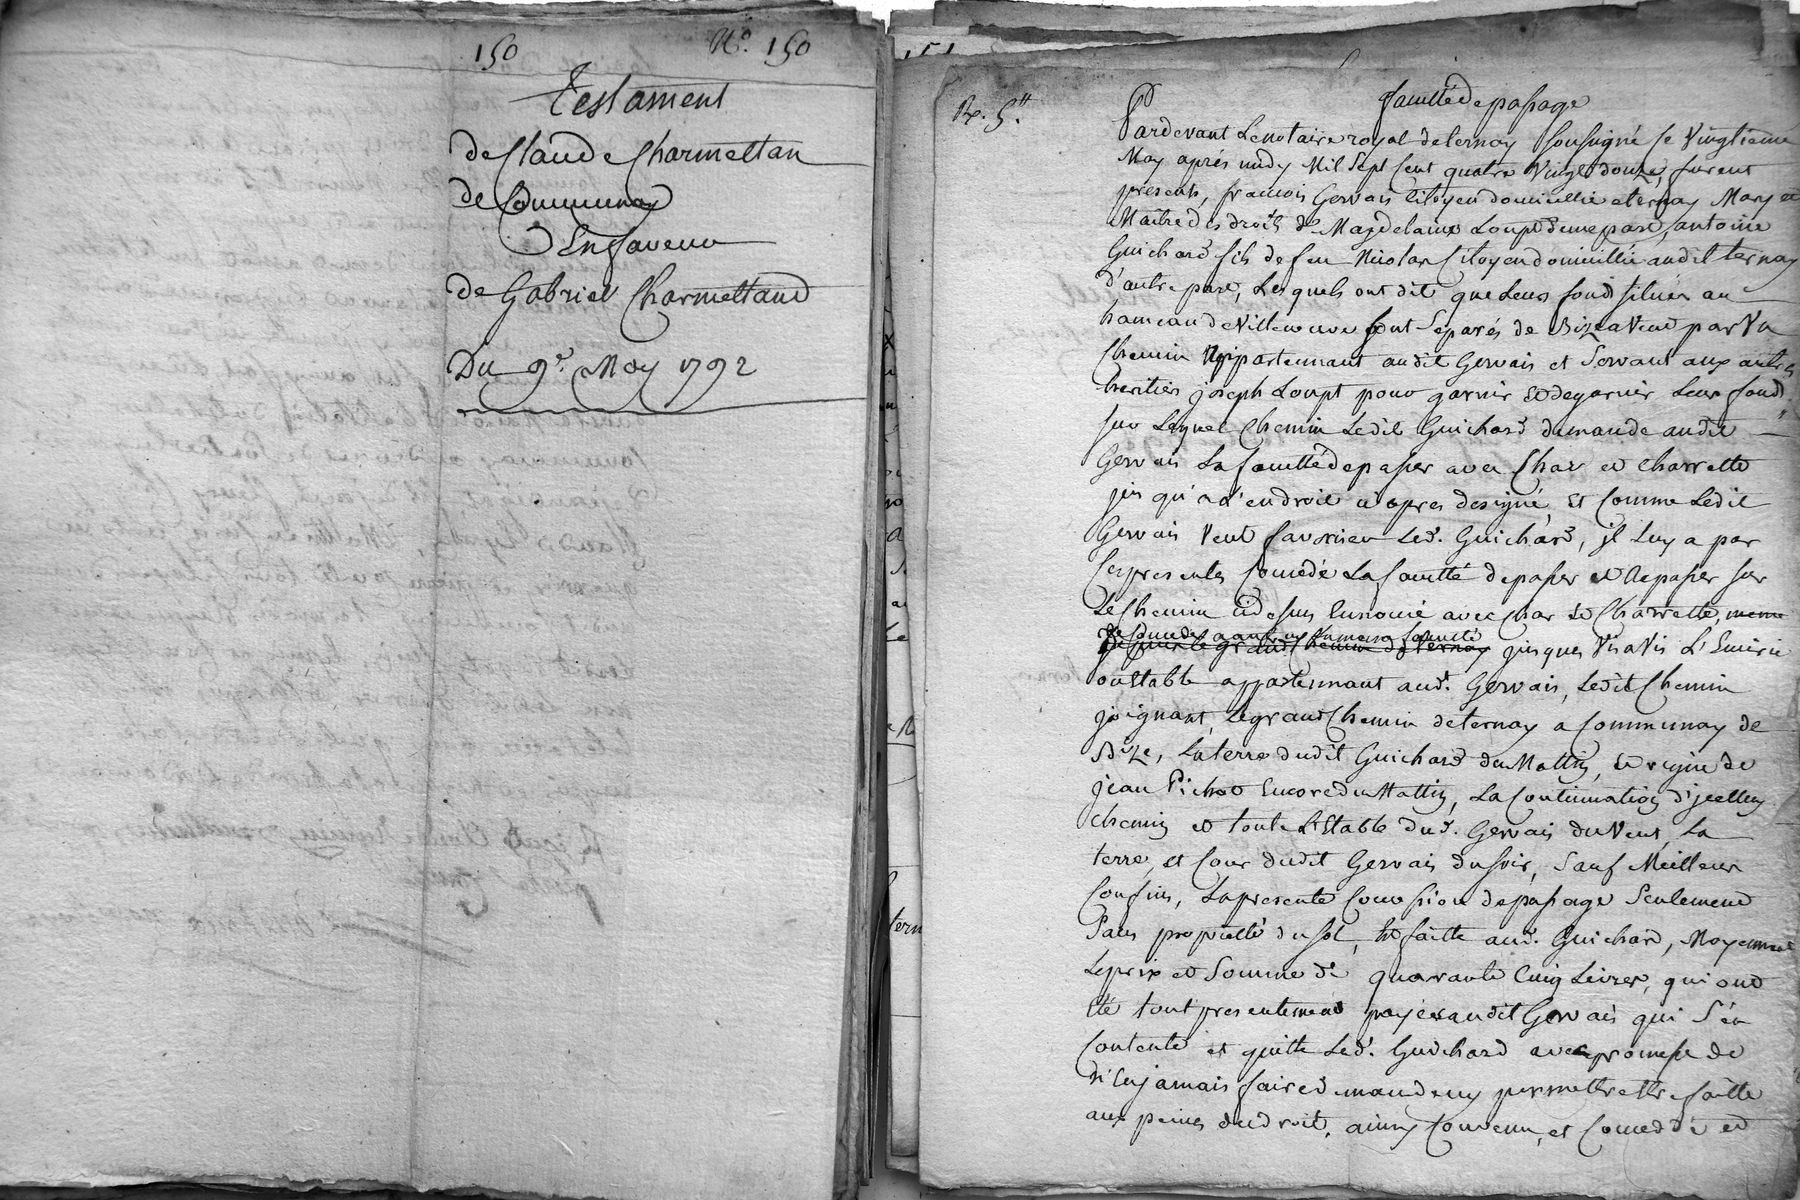 150
N.° 150
Testament
de Claude Charmettan
de Communay
Enfaveur
de Gabriel Charmettand
Du 9.e May 1792
151
Rx. 5.tt
faculté de passage
Pardevant Le notaire royal de ternay soussigné Le vingtieme
May après midy Mil Sept Cent quatre vingt douze, furent
presents, francois Gervais Citoyen domicillié a ternay Mary et
Maitre des droits de Magdelaine Loupt d'une part, antoine
Guichard fils de feu Nicolas Citoyen domicillié audit ternay
d'autre part, Lesquels ont dit que Leurs fonds situés au
hameau de Villeneuve sont Separés de Bize a Vent par Un
Chemin appartennant audit Gervais et Servant aux autres
heritiers joseph Loupt pour garnir et degarnir Leur fonds
sur Lequel Chemin Ledit Guichard demande audit
Gervais La faculté de passer avec Char et Charrette
jus qu'a L'endroit ci apres designé, Et Comme Ledit
Gervais Veut favoriser Led. Guichard, jl Luy a par
Ces presentes Concédé La faculté de passer et Repasser sur
Le Chemin ci dessus Enoncé avec Char et Charrette,
jusques Vis a Vis L'Ecurie
ou Etable appartennant aud. Gervais, Ledit Chemin
joignant Le grand Chemin de ternay a Communay de
Bize, La terre dudit Guichard du Mattin, Et vigne de
jean Pichot Encore du Mattin, La Continuation d'jcelluy
Chemin et toute L'Etable dud. Gervais du Vent, La
terre, et Cour dudit Gervais du soir, Sauf Meilleurs
Confins, La presente Concession de passage Seulement
Sans proprieté du sol, Est faitte aud. Guichard, Moyennant
Le prix et Somme de quarante Cinq Livres, qui ont
Eté tout presentement payés audit Gervais qui S'en
Contente et quitte Led. Guichard avec promesse de
N'en jamais faire demande ny permettre Etre faitte
aux peines de droit, ainsy Convenu, et Conceddé et